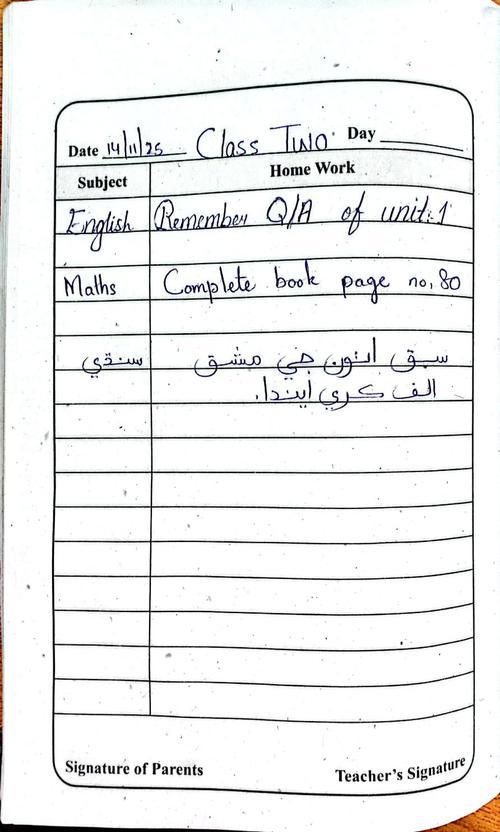 Date 14/11/25 Class Two Day
Subject Home Work
English Remember Q/A of unit:1
Maths Complete book page no, 80
سنڌي سبق اٺون جي مشق
الف ڪري ايندا.
Signature of Parents Teacher's Signature